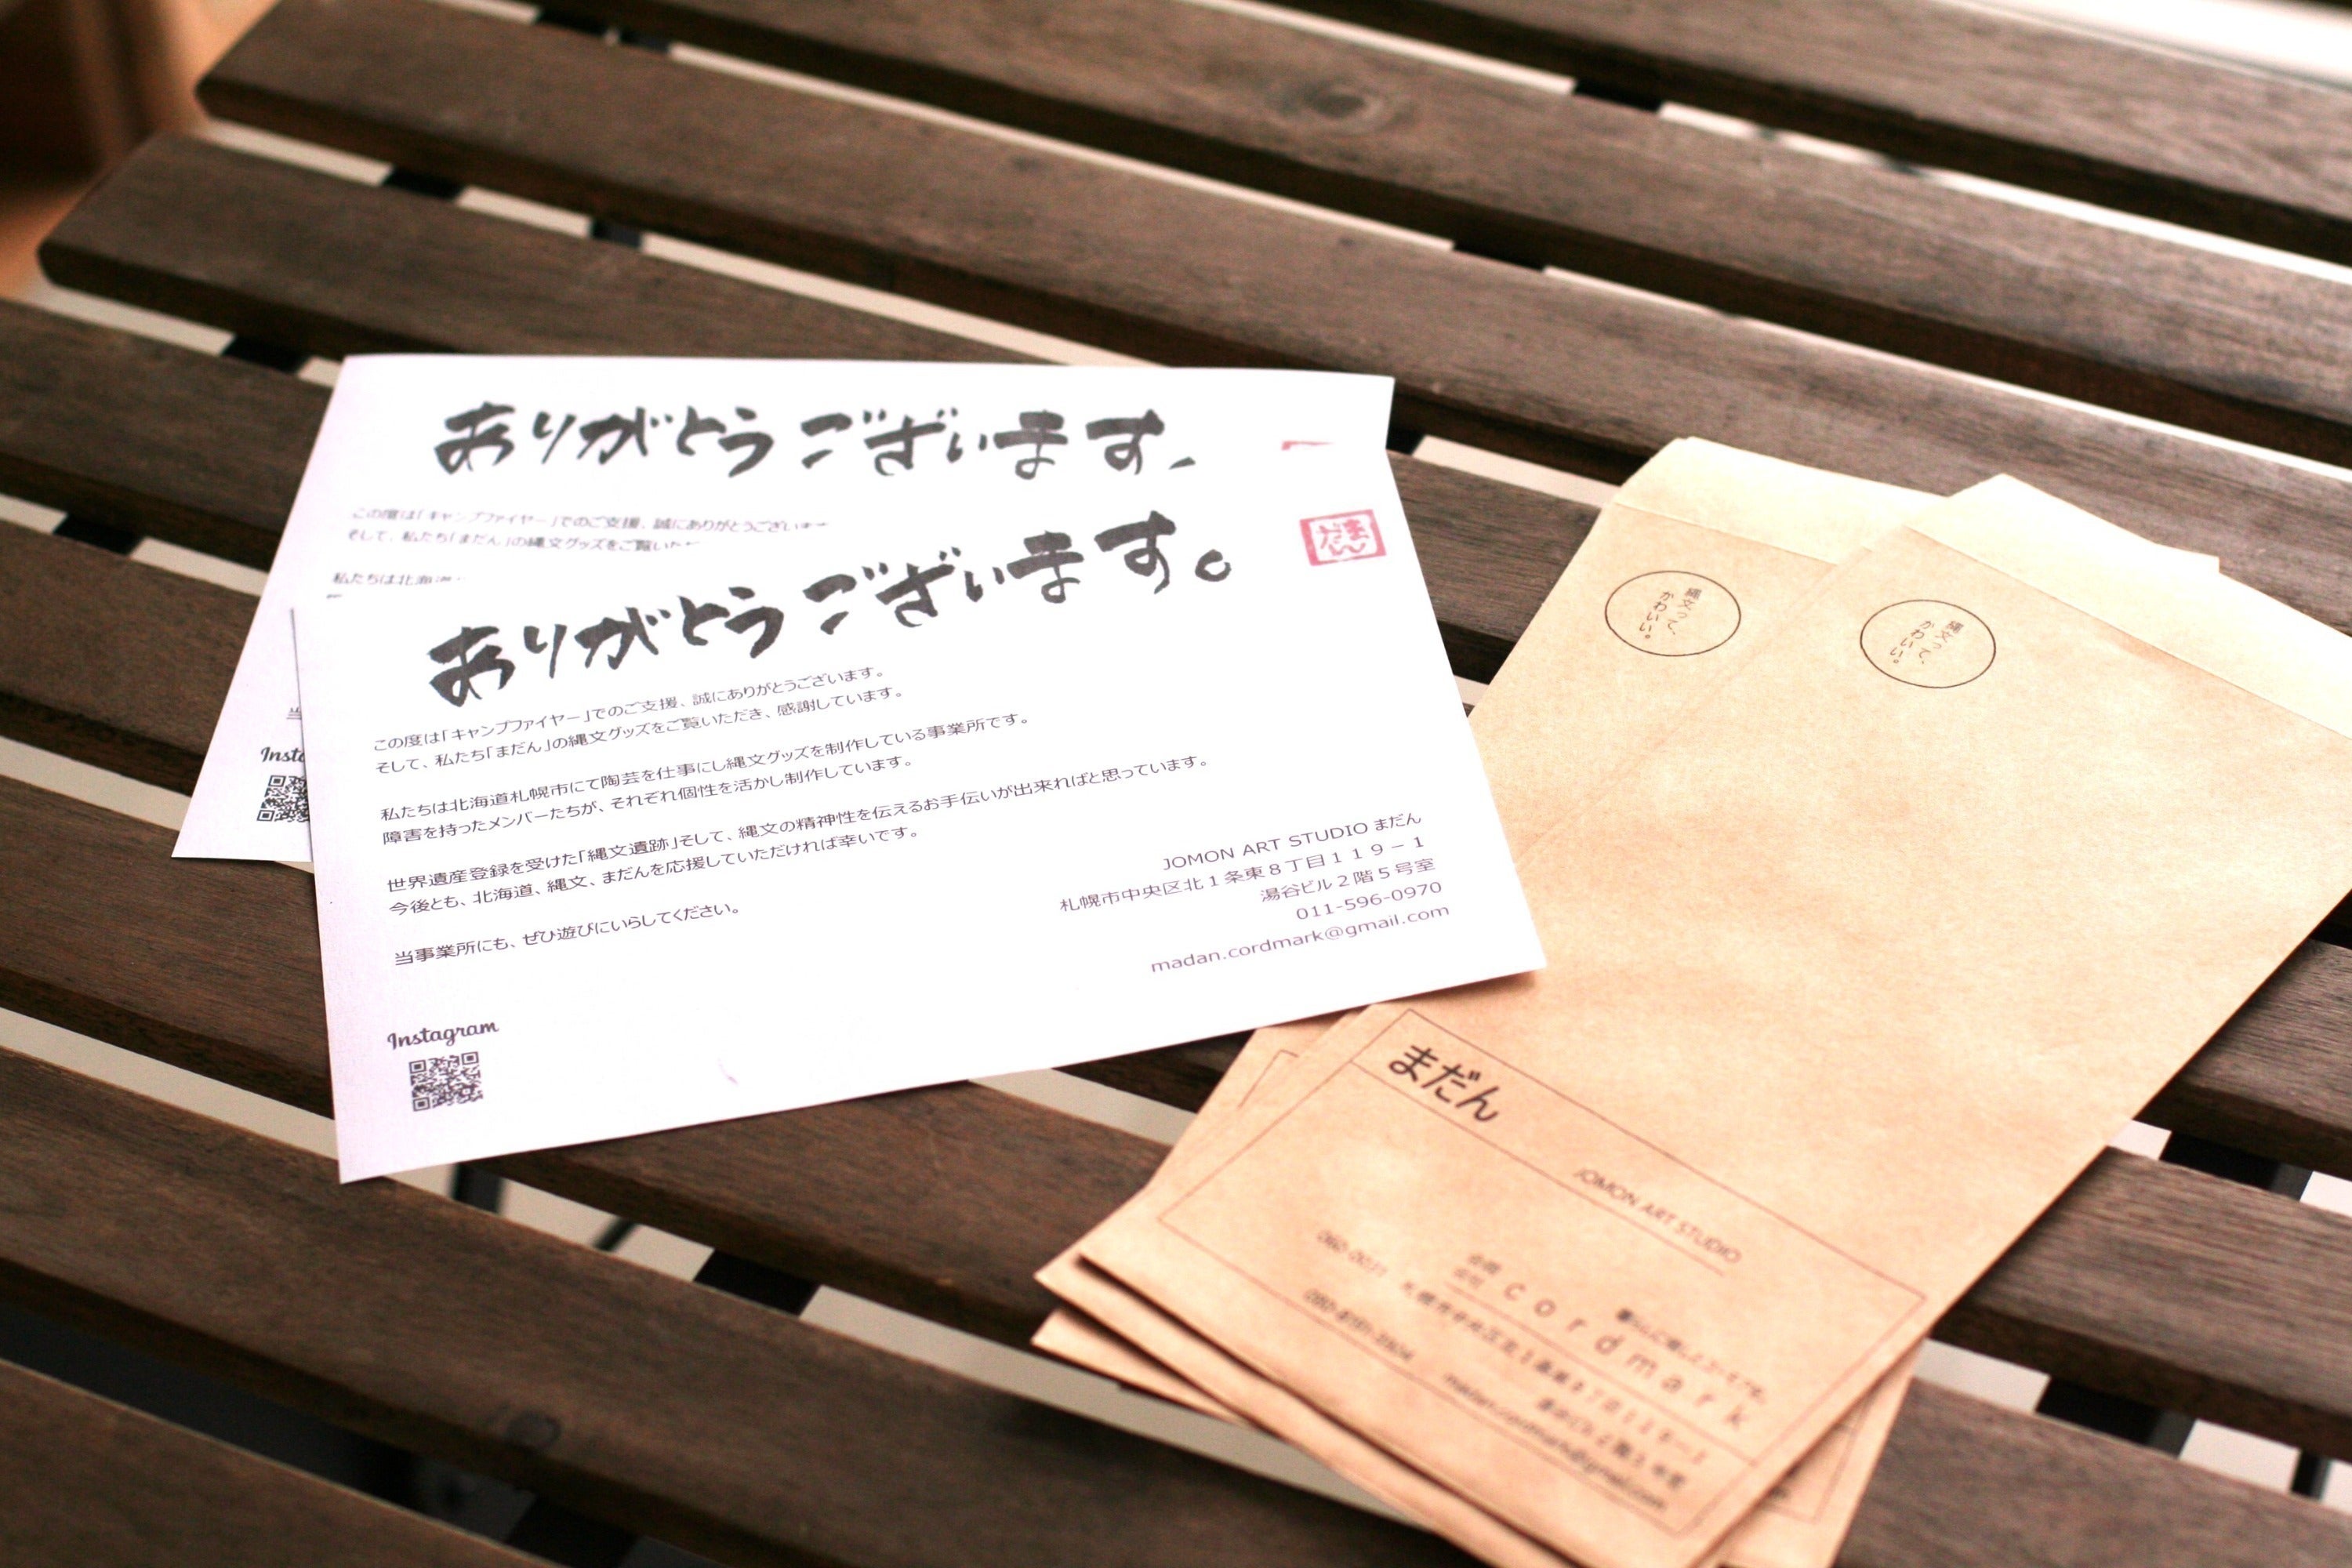 ありがとうございます
この度は「キャンプファイヤー」でのご支援、誠にありがとうござい
そして、私たち「まだん」の縄文グッズをご覧いただ
私たちは北海
Insta
ありがとうございます。
まだん
この度は「キャンプファイヤー」でのご支援、誠にありがとうございます。
そして、私たち「まだん」の縄文グッズをご覧いただき、感謝しています。
私たちは北海道札幌市にて陶芸を仕事にし縄文グッズを制作している事業所です。
障害を持ったメンバーたちが、それぞれ個性を活かし制作しています。
世界遺産登録を受けた「縄文遺跡」そして、縄文の精神性を伝えるお手伝いが出来ればと思っています。
今後とも、北海道、縄文、まだんを応援していただければ幸いです。
当事業所にも、ぜひ遊びにいらしてください。
JOMON ART STUDIO まだん
札幌市中央区北1条東8丁目119－1
湯谷ビル2階5号室
011-596-0970
madan.cordmark@gmail.com
Instagram
縄文って、
かわいい。
縄文って、
かわいい。
まだん
JOMON ART STUDIO
合同
会社
cordmark
060-0031 札幌市中央区北1条東8丁目119－1
madan.cordmark@gmail.com